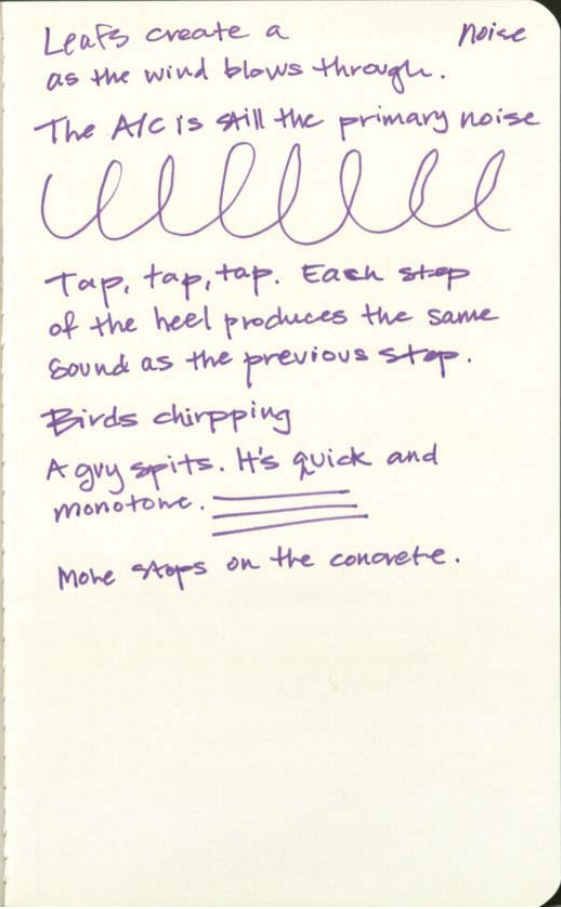 Leafs create a noise
as the wind blows through.
The A/C is still the primary noise
Tap, tap, tap. Each step
of the heel produces the same
sound as the previous step.
Birds chirpping
A guy spits. It's quick and
monotone.
More steps on the concrete.